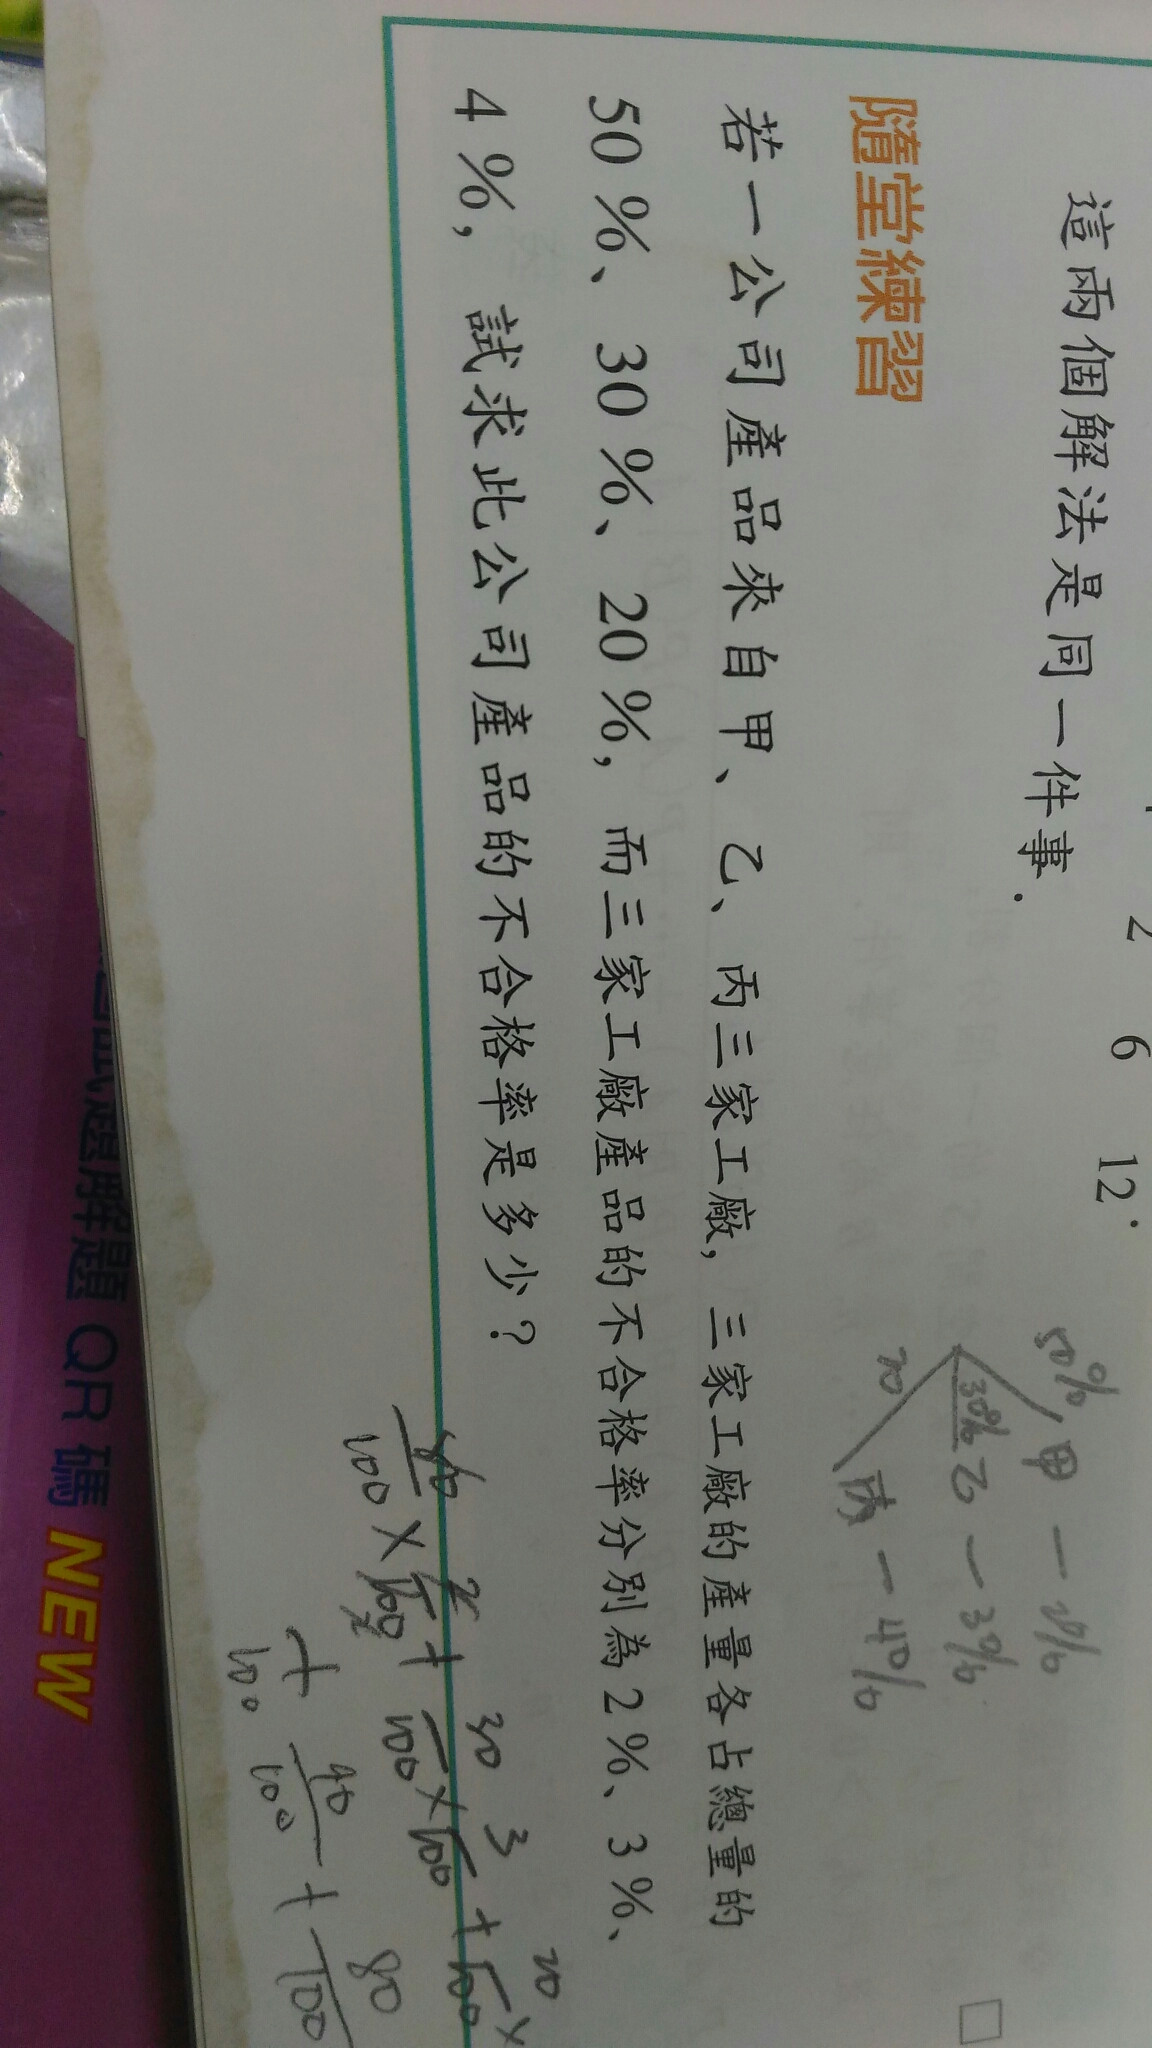 2 6 12.
這兩個解法是同一件事.
隨堂練習
若一公司產品來自甲、乙、丙三家工廠, 三家工廠的產量各占總量的
50 %、30 %、20 %, 而三家工廠產品的不合格率分別為 2 %、3 %、
4 %, 試求此公司產品的不合格率是多少?
50% 甲 — 2%
30% 乙 — 3%
20 丙 — 4%
30 3 20
100 × 100 + 100 × 100 + 100 ×
40 80
100 + 100 + 100
解題 QR 碼 NEW